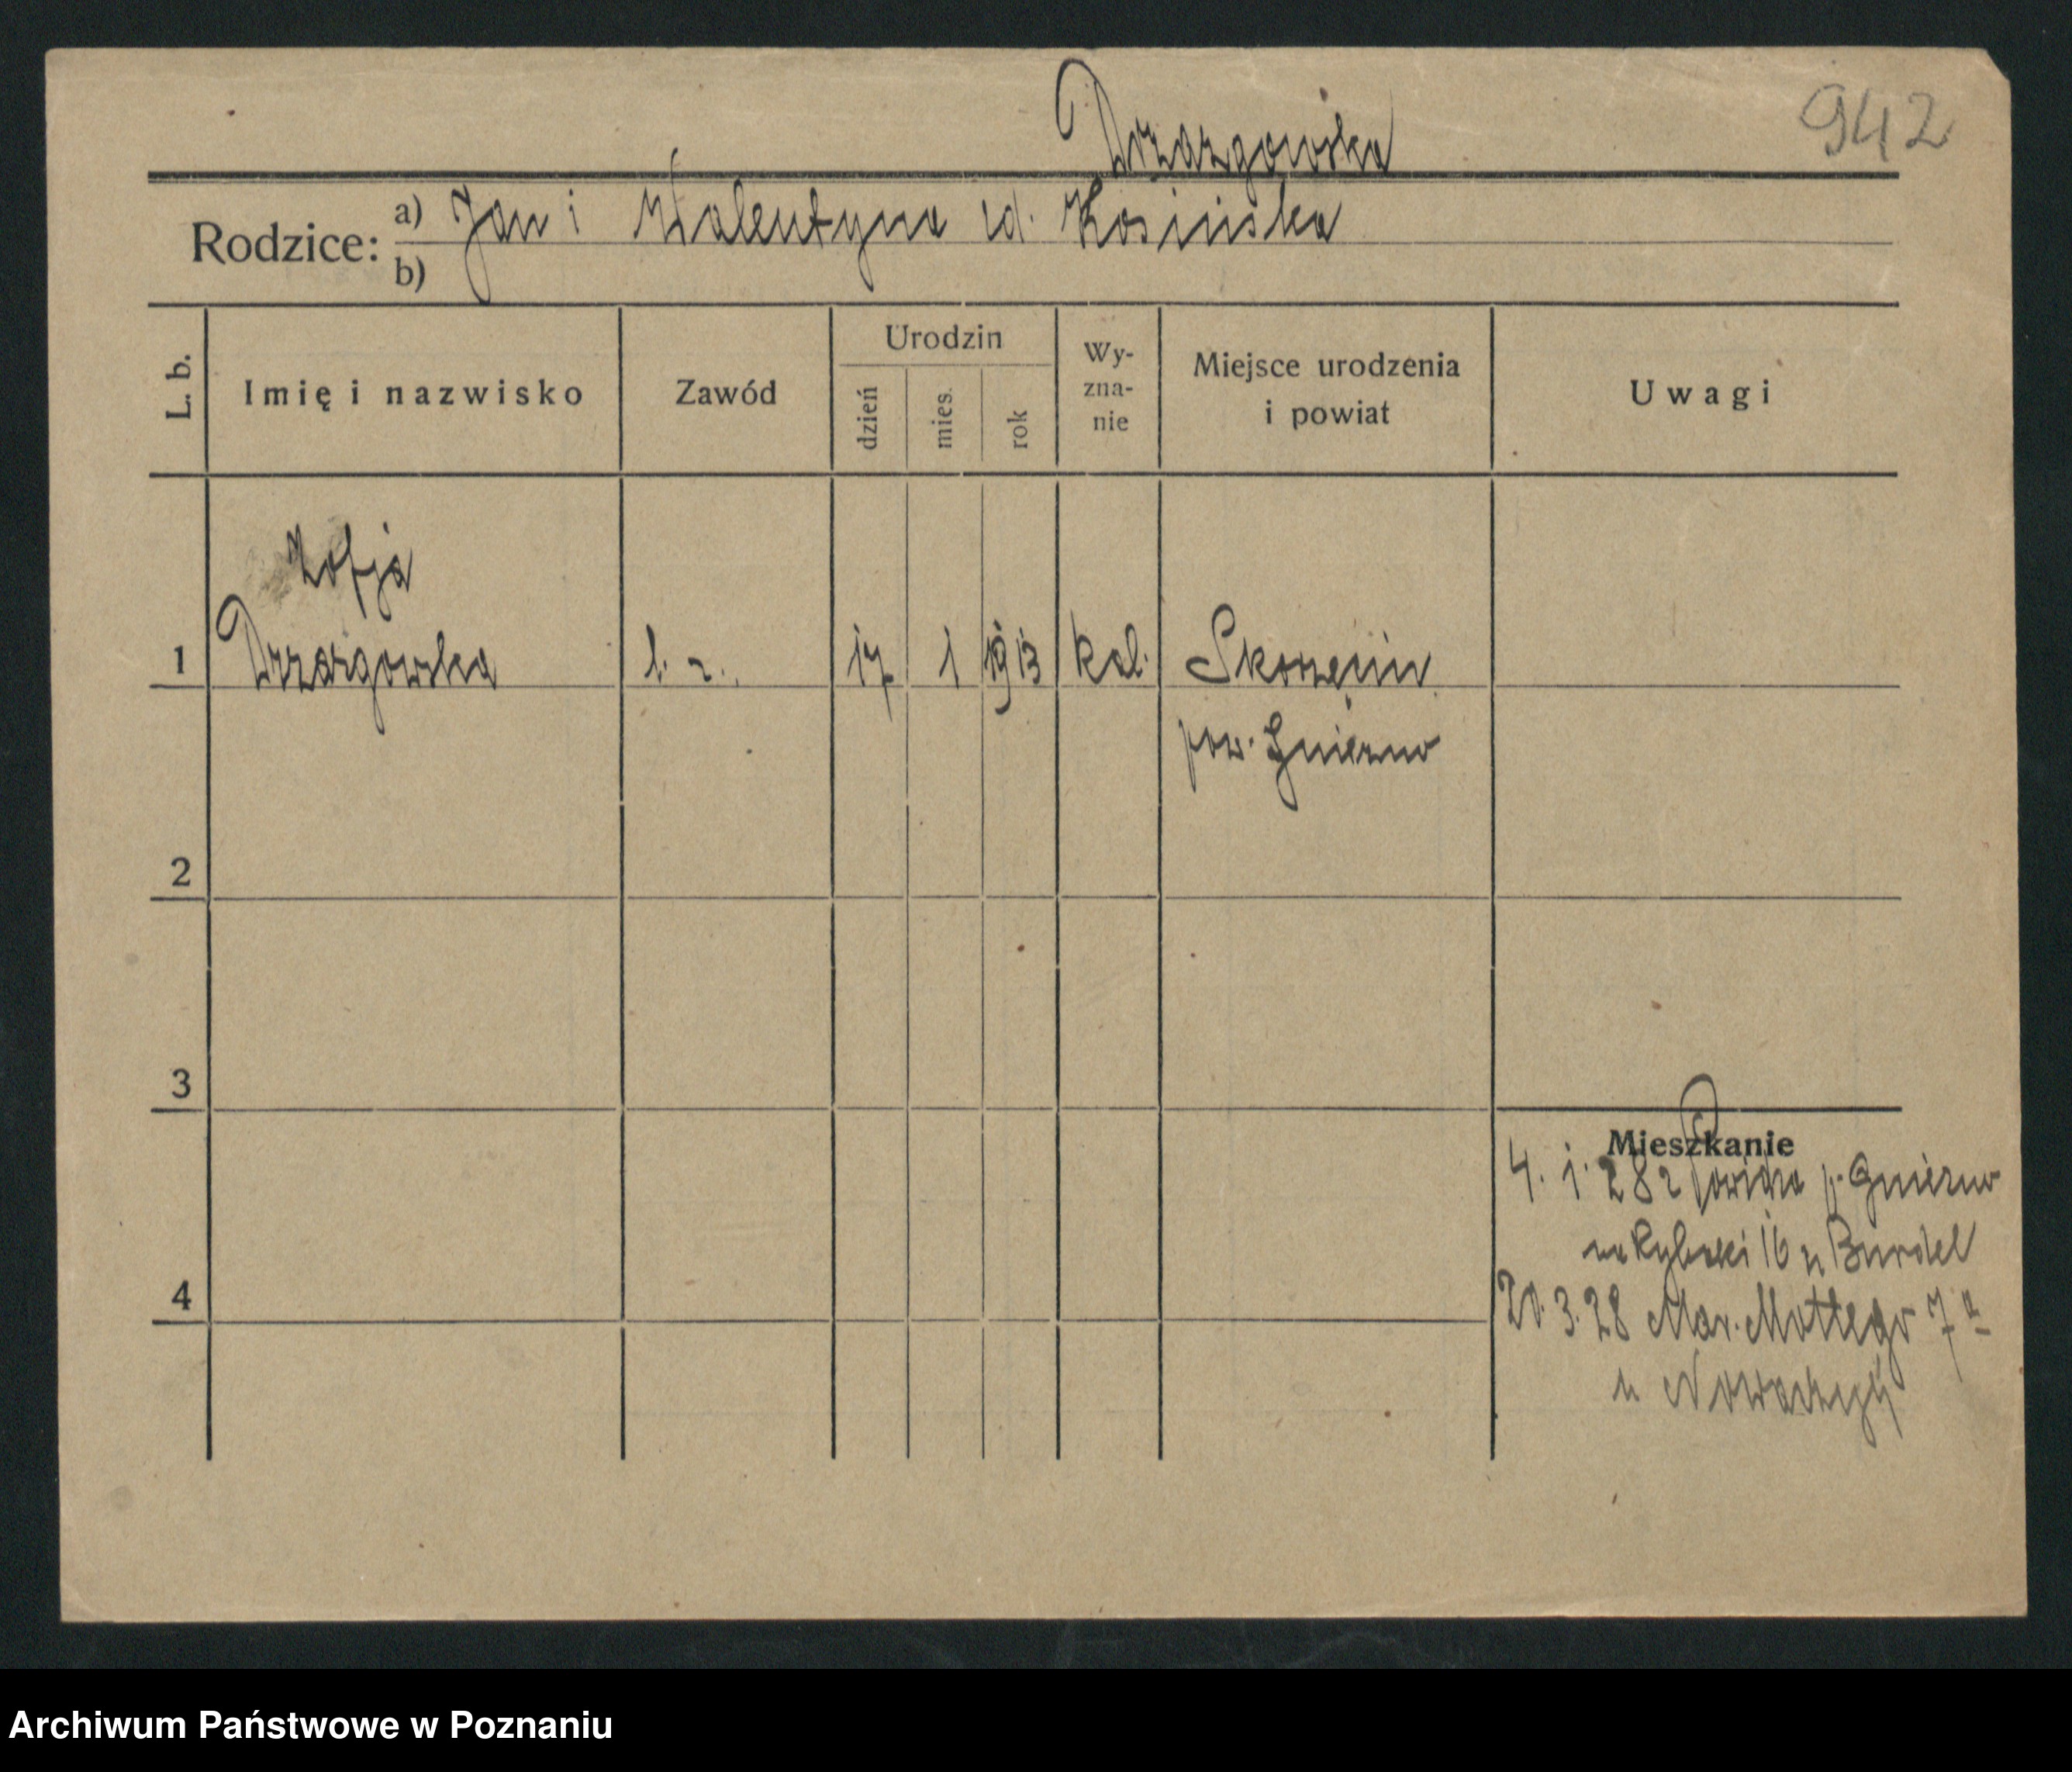 942
Drzazgowska
Rodzice: a) Jan i Walentyna zd. Kosińska
b)
L. b. Imię i nazwisko Zawód Urodzin dzień mies. rok Wy-zna-nie Miejsce urodzenia i powiat Uwagi
Zofja
1 Drzazgowska b. z. 17 1 1913 kat. Skorzęcin
pow. Gniezno
2
3
Mieszkanie
4. 1. 28 z Powidza p. Gniezno
na Rybaki 16 u Burdel
4
20. 3. 28 Mar. Mottego 7a
u
Archiwum Państwowe w Poznaniu